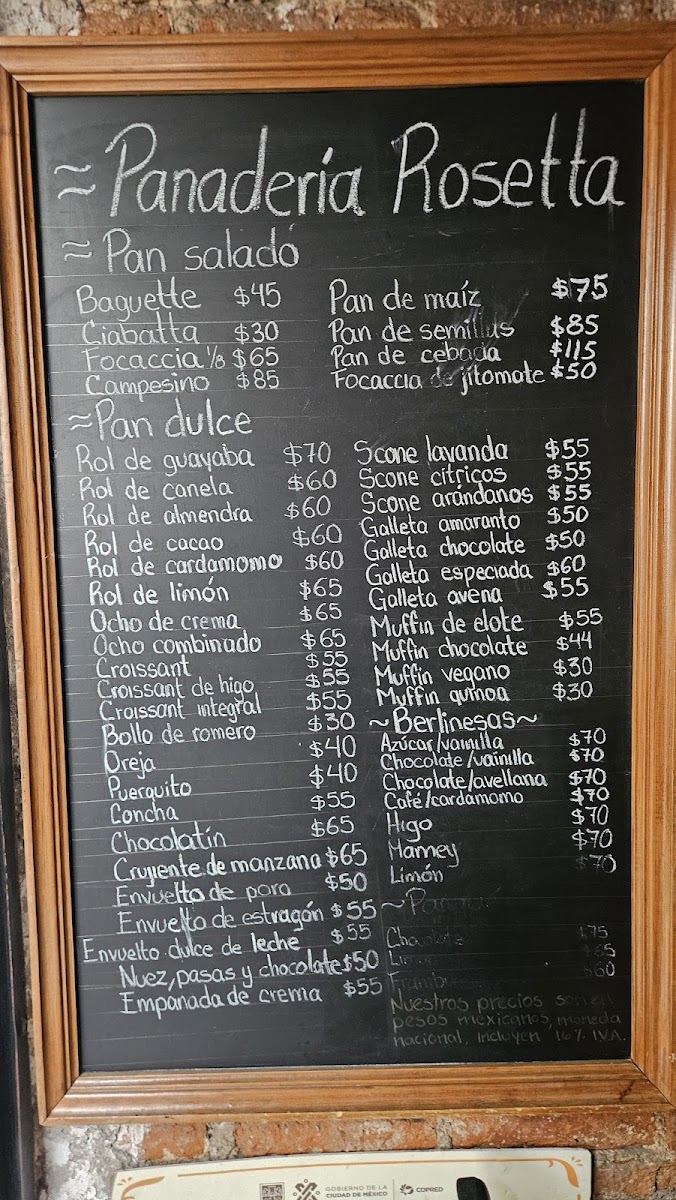 ≈Panadería Rosetta
≈Pan salado
Baguette $45
Ciabatta $30
Focaccia 1/8 $65
Campesino $85
Pan de maíz $75
Pan de semillas $85
Pan de cebada $115
Focaccia de jitomate $50
≈Pan dulce
Rol de guayaba $70
Rol de canela $60
Rol de almendra $60
Rol de cacao $60
Rol de cardamomo $60
Rol de limón $65
Ocho de crema $65
Ocho combinado $65
Croissant $55
Croissant de higo $55
Croissant integral $55
Bollo de romero $30
Oreja $40
Puerquito $40
Concha $55
Chocolatín $65
Cruyente de manzana $65
Envuelto de poro $50
Envuelto de estragón $55
Envuelto dulce de leche $55
Nuez, pasas y chocolate $50
Empanada de crema $55
Scone lavanda $55
Scone cítricos $55
Scone arándanos $55
Galleta amaranto $50
Galleta chocolate $50
Galleta especiada $60
Galleta avena $55
Muffin de elote $55
Muffin chocolate $44
Muffin vegano $30
Muffin quinoa $30
~Berlinesas~
Azúcar/vainilla $70
Chocolate/vainilla $70
Chocolate/avellana $70
Café/cardamomo $70
Higo $70
Mamey $70
Limón $70
~Panqué
Chocolate $75
$65
$60
Nuestros precios son en
pesos mexicanos, moneda
nacional, incluyen 16% IVA.
GOBIERNO DE LA
CIUDAD DE MÉXICO
COPRED